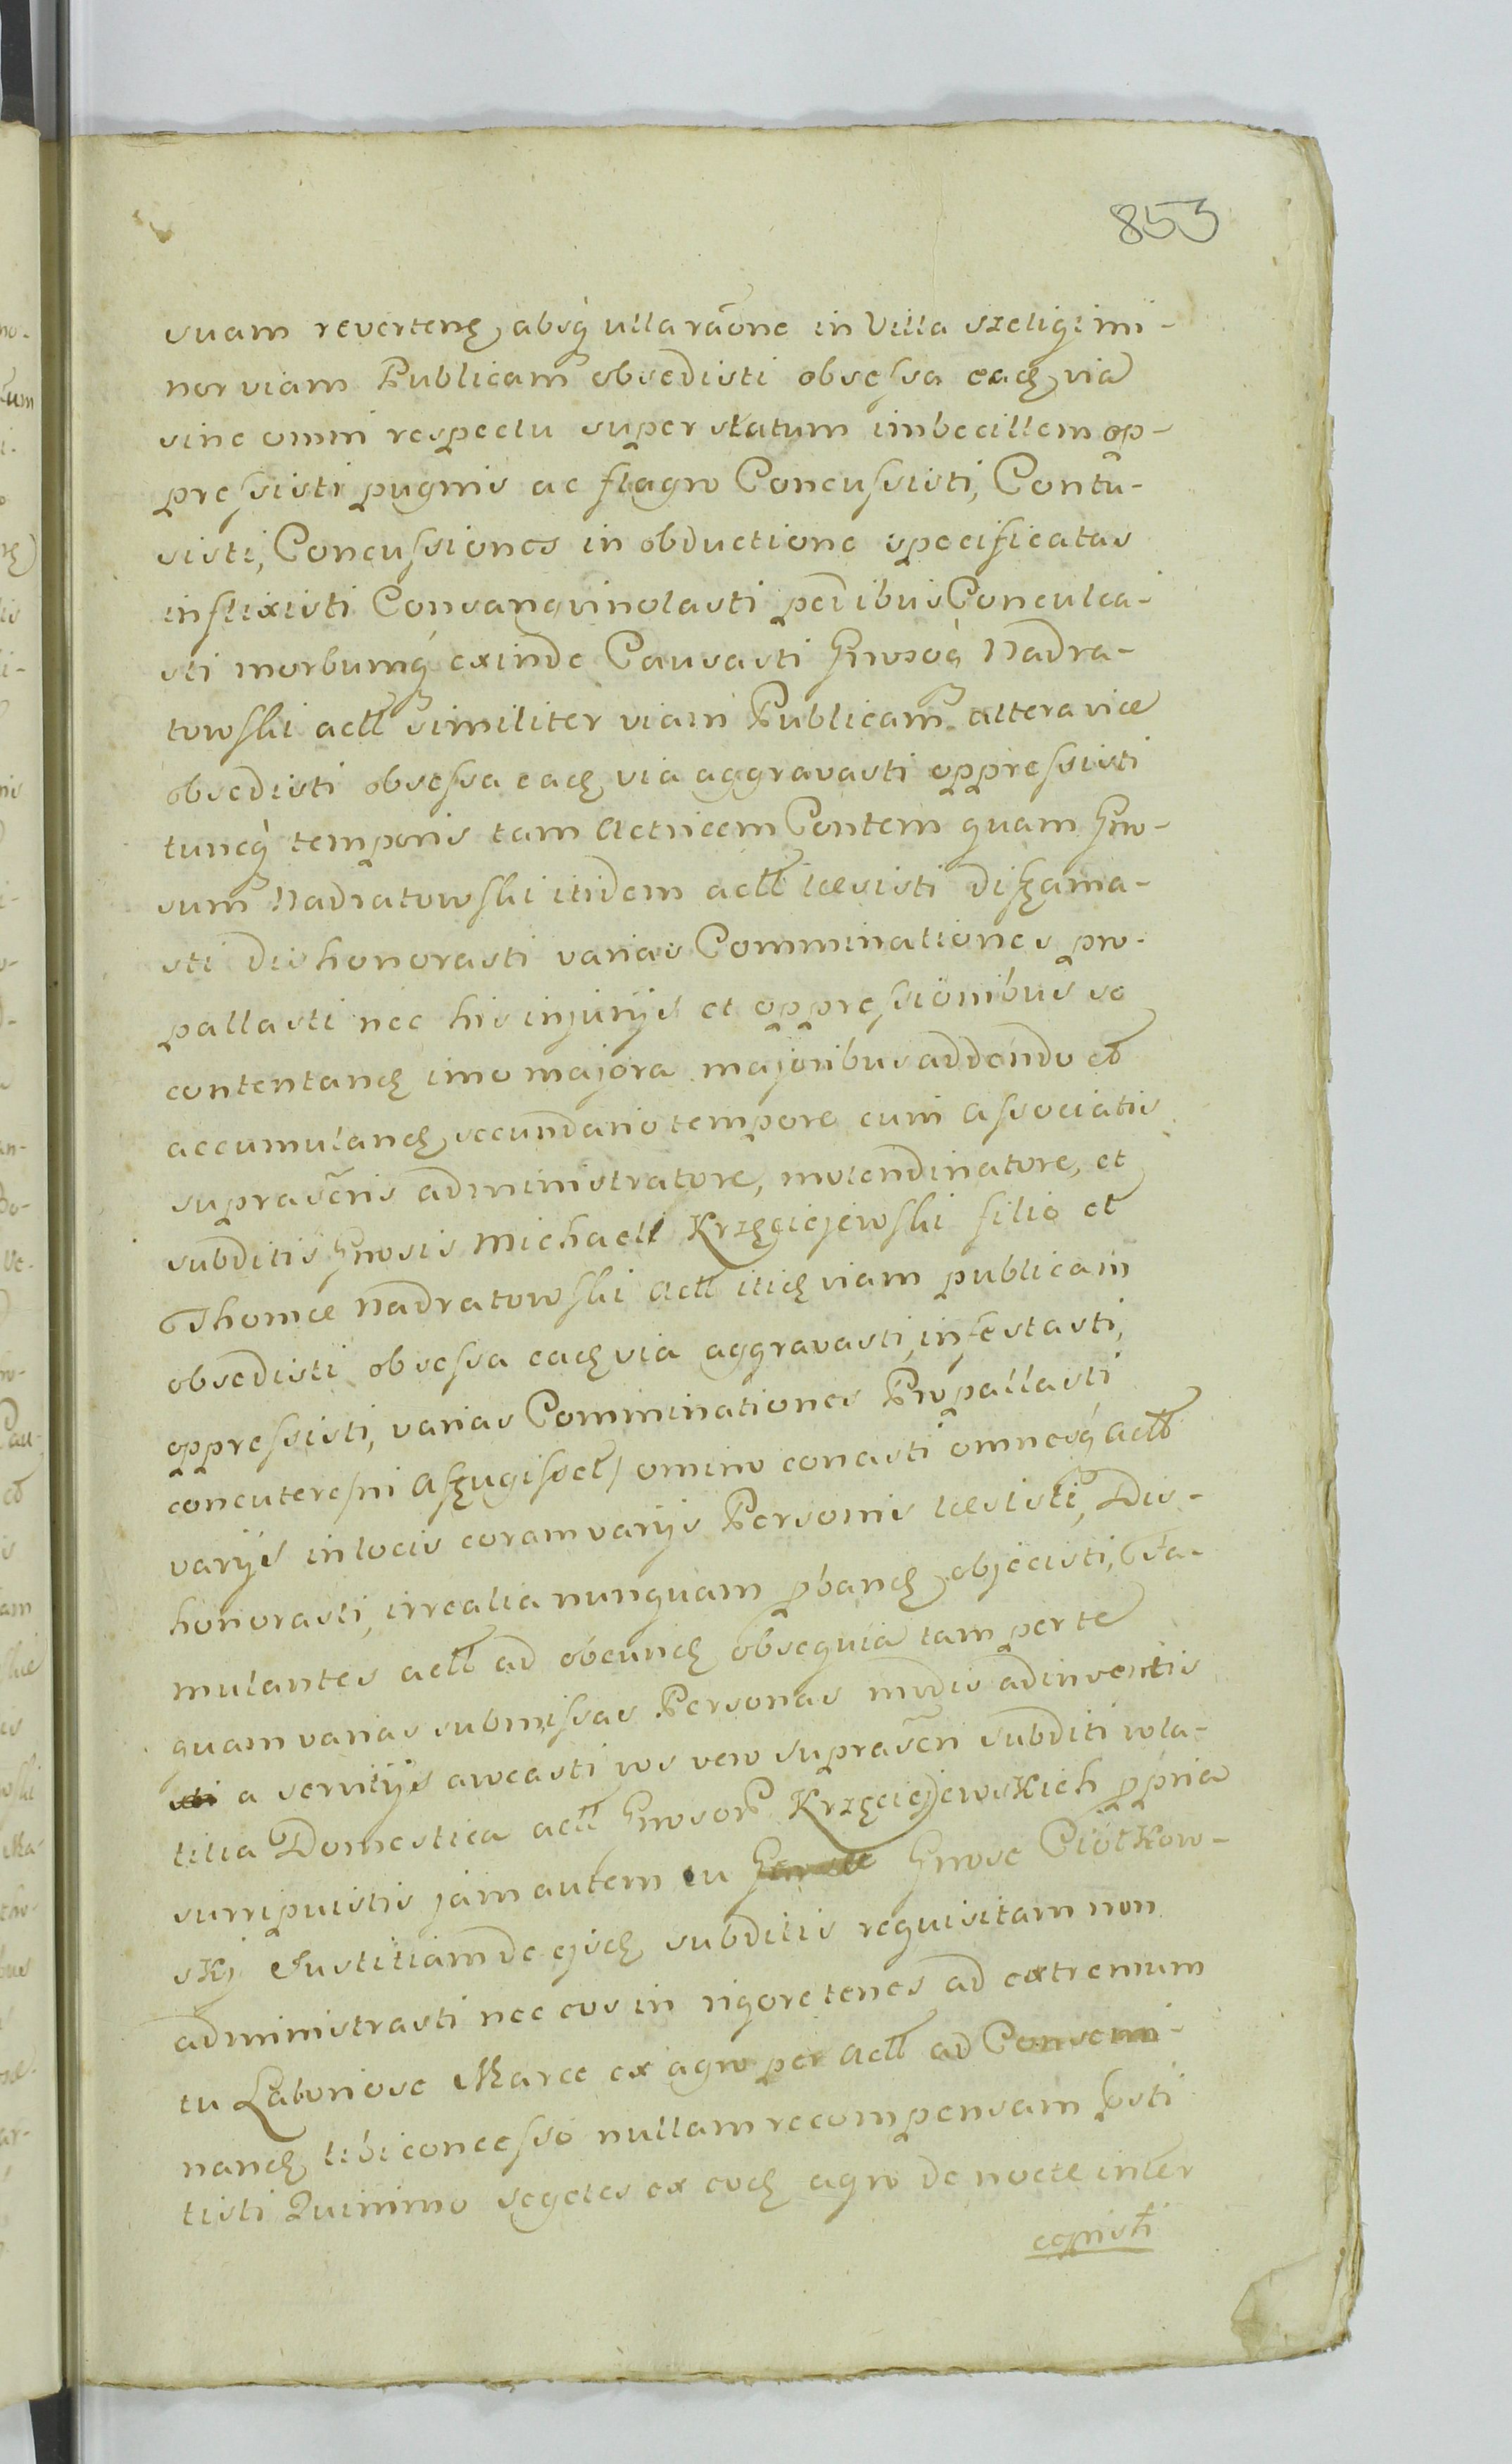 853
suam revertenɖ absq̀ ulla raõne in Villa szeligi mi-
nor viam Publicam obsedisti obsessa eaɖ via
sine omni respectu super statum imbecillem op-
pressisti pugnis ac flagro Concussisti, Contu-
sisti, Concussiones in obductione specificatas
inflixisti Consanguinolasti pedibus Conculca-
sti morbumq́ exinde Causasti Gnosoq́ Nadra-
towski actt similiter viam Publicam altera vice
obsedisti obsessa eaɖ via aggravasti oppressisti
tuncq̀ temporis tam Actricem Contem quam Gno-
sum Nadratowski itidem actt læsisti diffama-
sti dishonorasti varias Comminationes pro-
pallasti nec his injurijs et oppressionibus se
contentanɖ imo majora majoribus addendo et
accumulanɖ secundario tempore cum associatis
suprascr̃is administratore, molendinatore, et
subditis Gnosis Michaeli Krzęciejewski filio et
Thomæ Nadratowski Actt itiɖ viam publicam
obsedisti obsessa eaɖ via aggravasti, infestasti,
oppressisti, varias Comminationes Propallasti
concutere/ni Affugisset/ omino conasti omnesq́ actt
varijs in locis coram varijs Personis læsisti, Dis-
honorasti, irrealia nunquam p̱banɖ objecisti, Fa-
mulantes actt ad obeunɖ obsequia tam per te
quam varias submissas Personas modis adinventis
a servitijs avocasti vos vero suprascr̃i subditi vola-
tilia Domestica actt Gnosor̃ Krzęciejewskich p̱pria
surripuistis jam autem tu Gnose Ciółkow-
skj Justitiam de ejsɖ subditis requisitam non
administrasti nec eos in rigore tenes ad extremum
tu Laboriose Marce ex agro per Actt ad Consemi-
nanɖ tibi concesso nullam recompensam p̃sti
tisti Quinimo segetes ex eoɖ agro de nocte inter
cepisti